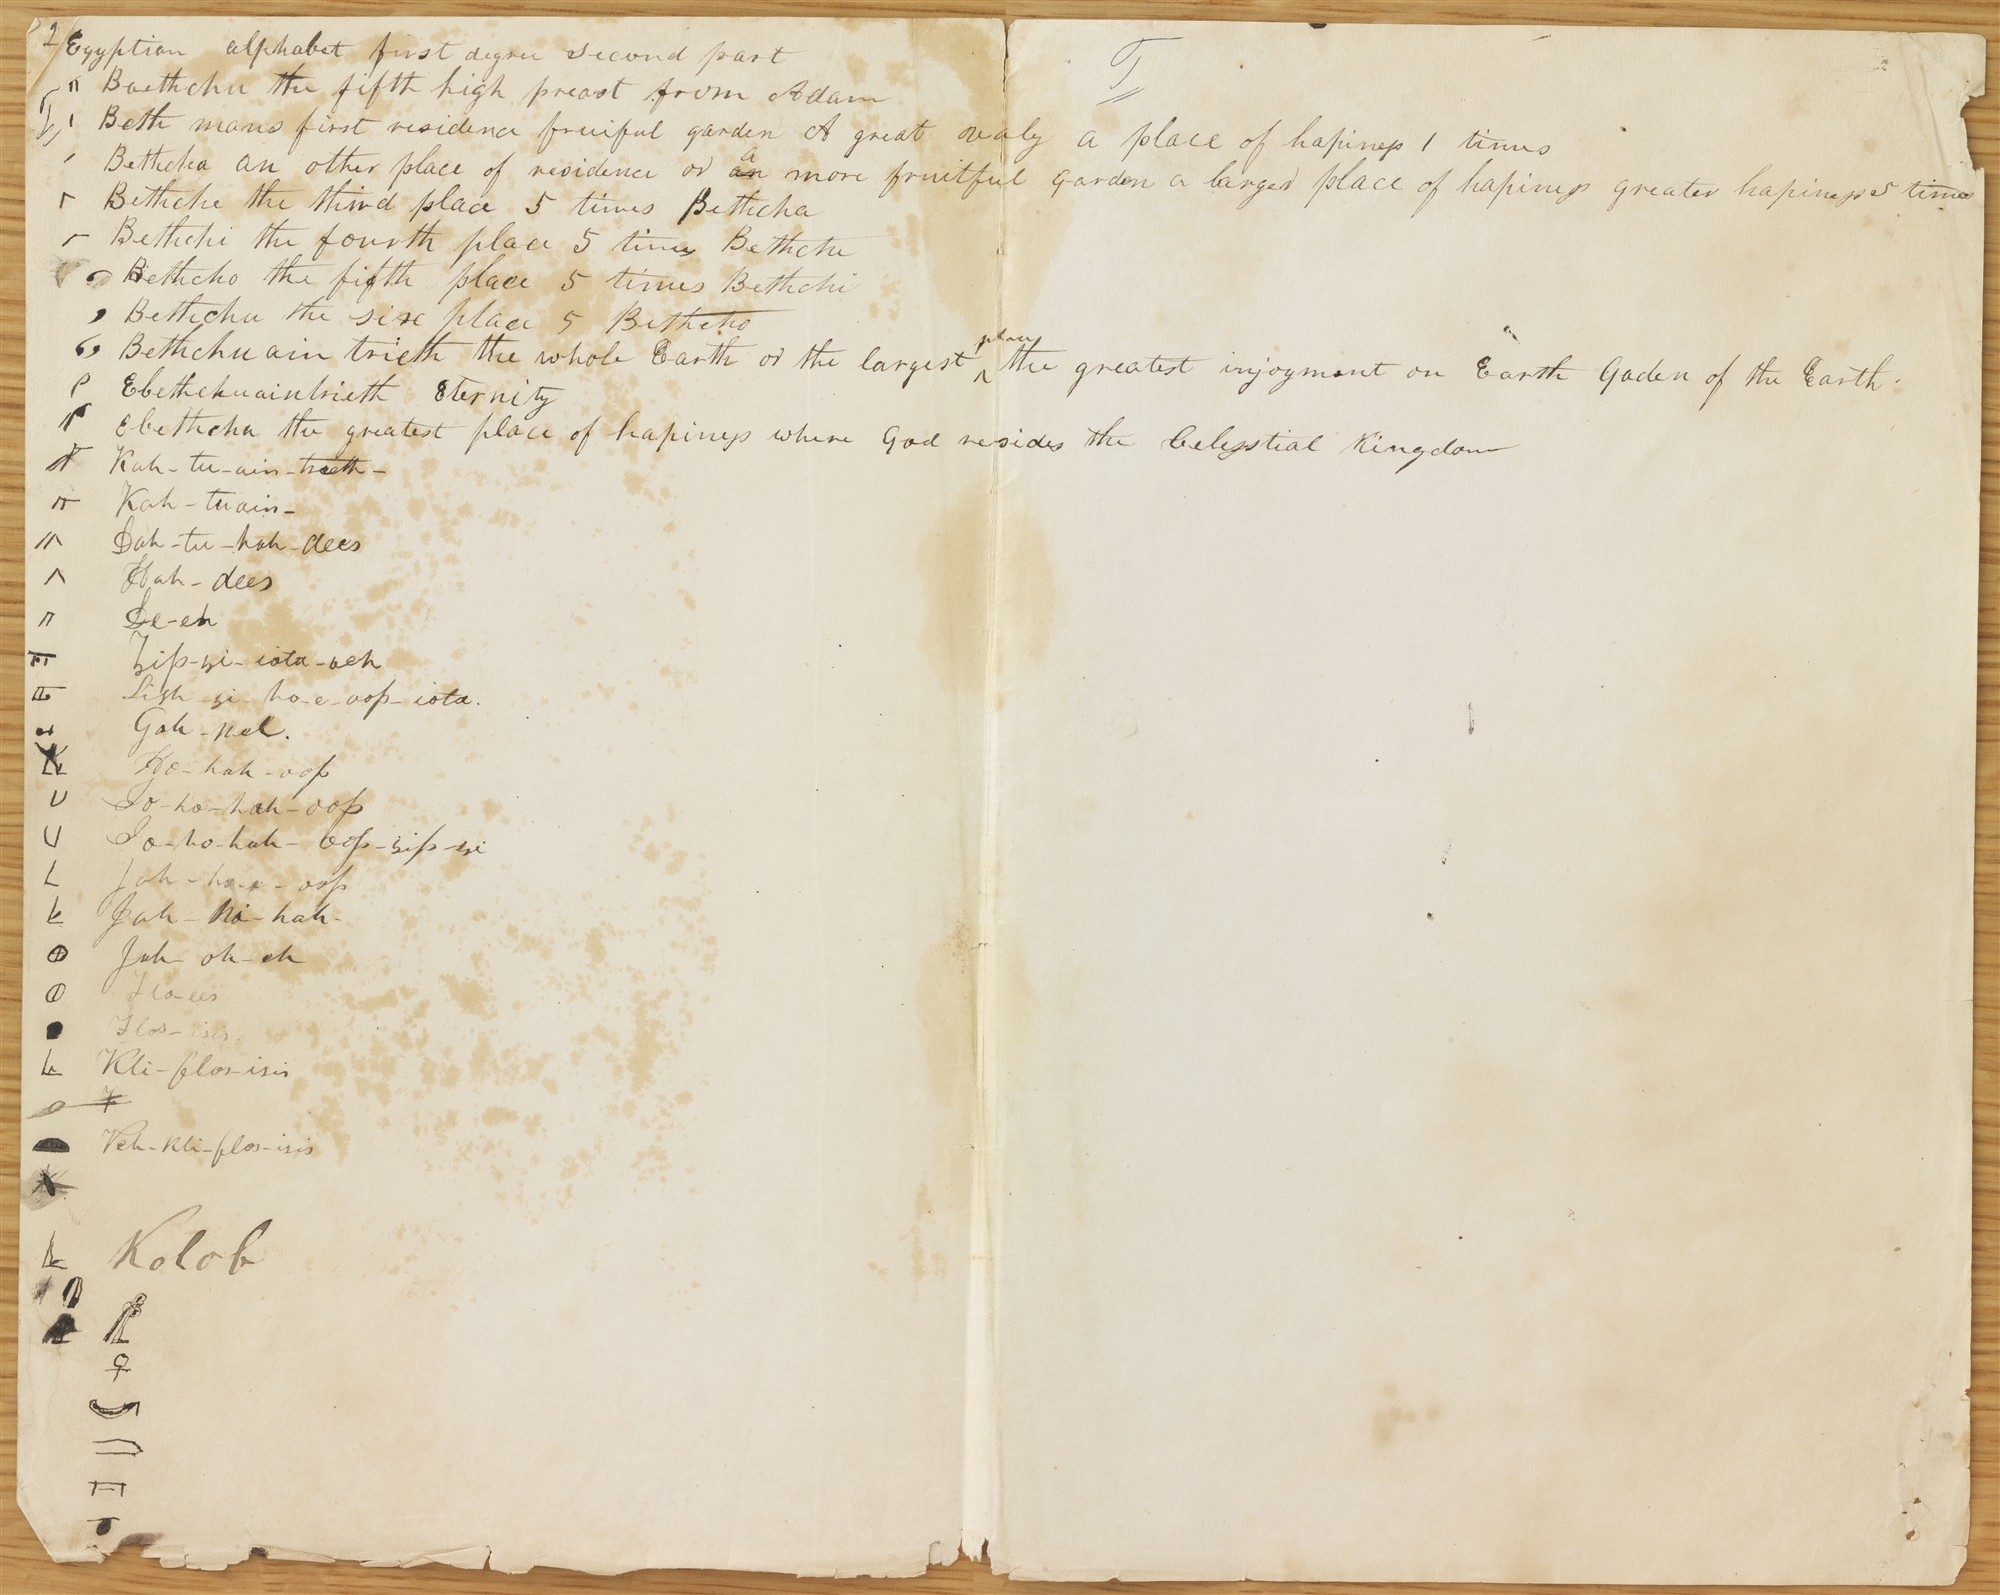 2 Egyptian alphabet first degree second part
Baethchu the fifth high preast from Adam
Beth mans first residence fruiful garden A great vally a place of hapiness 1 times
Bethcha an other place of residence or a more fruitful garden a larger place of hapiness greater hapiness 5 times
Bethche the third place 5 times Bethcha
Bethchi the fourth place 5 times Bethche
Bethcho the fifth place 5 times Bethchi
Bethchu the six place 5 Bethcho
Bethchuain trieth the whole Earth or the largest place the greatest injoyment on Earth Gaden of the Earth.
Ebethchuaintrieth Eternity
Ebethcha the greatest place of hapiness where God resides the Celesstial Kingdom
Kah-tu-ain-trieth-
Kah-tuain-
Dah-tu-hah-dees
Hah-dees
De-eh
Zip-zi-iota-veh
Lish-zi-ho-e-oop-iota.
Gah-nel.
Ho-hah-oop
Io-ho-hah-oop
Io-ho-hah-oop-zip-zi
Jah-ho-e-oop
Jah-ni-hah-
Jah-oh-eh
Flo-ees
Flos-isis.
Kli-flos-isis
Veh-Kli-flos-isis
Kolob